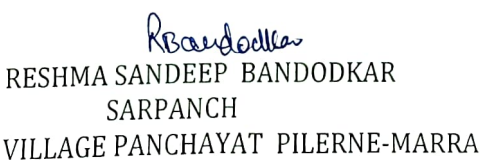 RBandodkar
RESHMA SANDEEP BANDODKAR
SARPANCH
VILLAGE PANCHAYAT PILERNE-MARRA